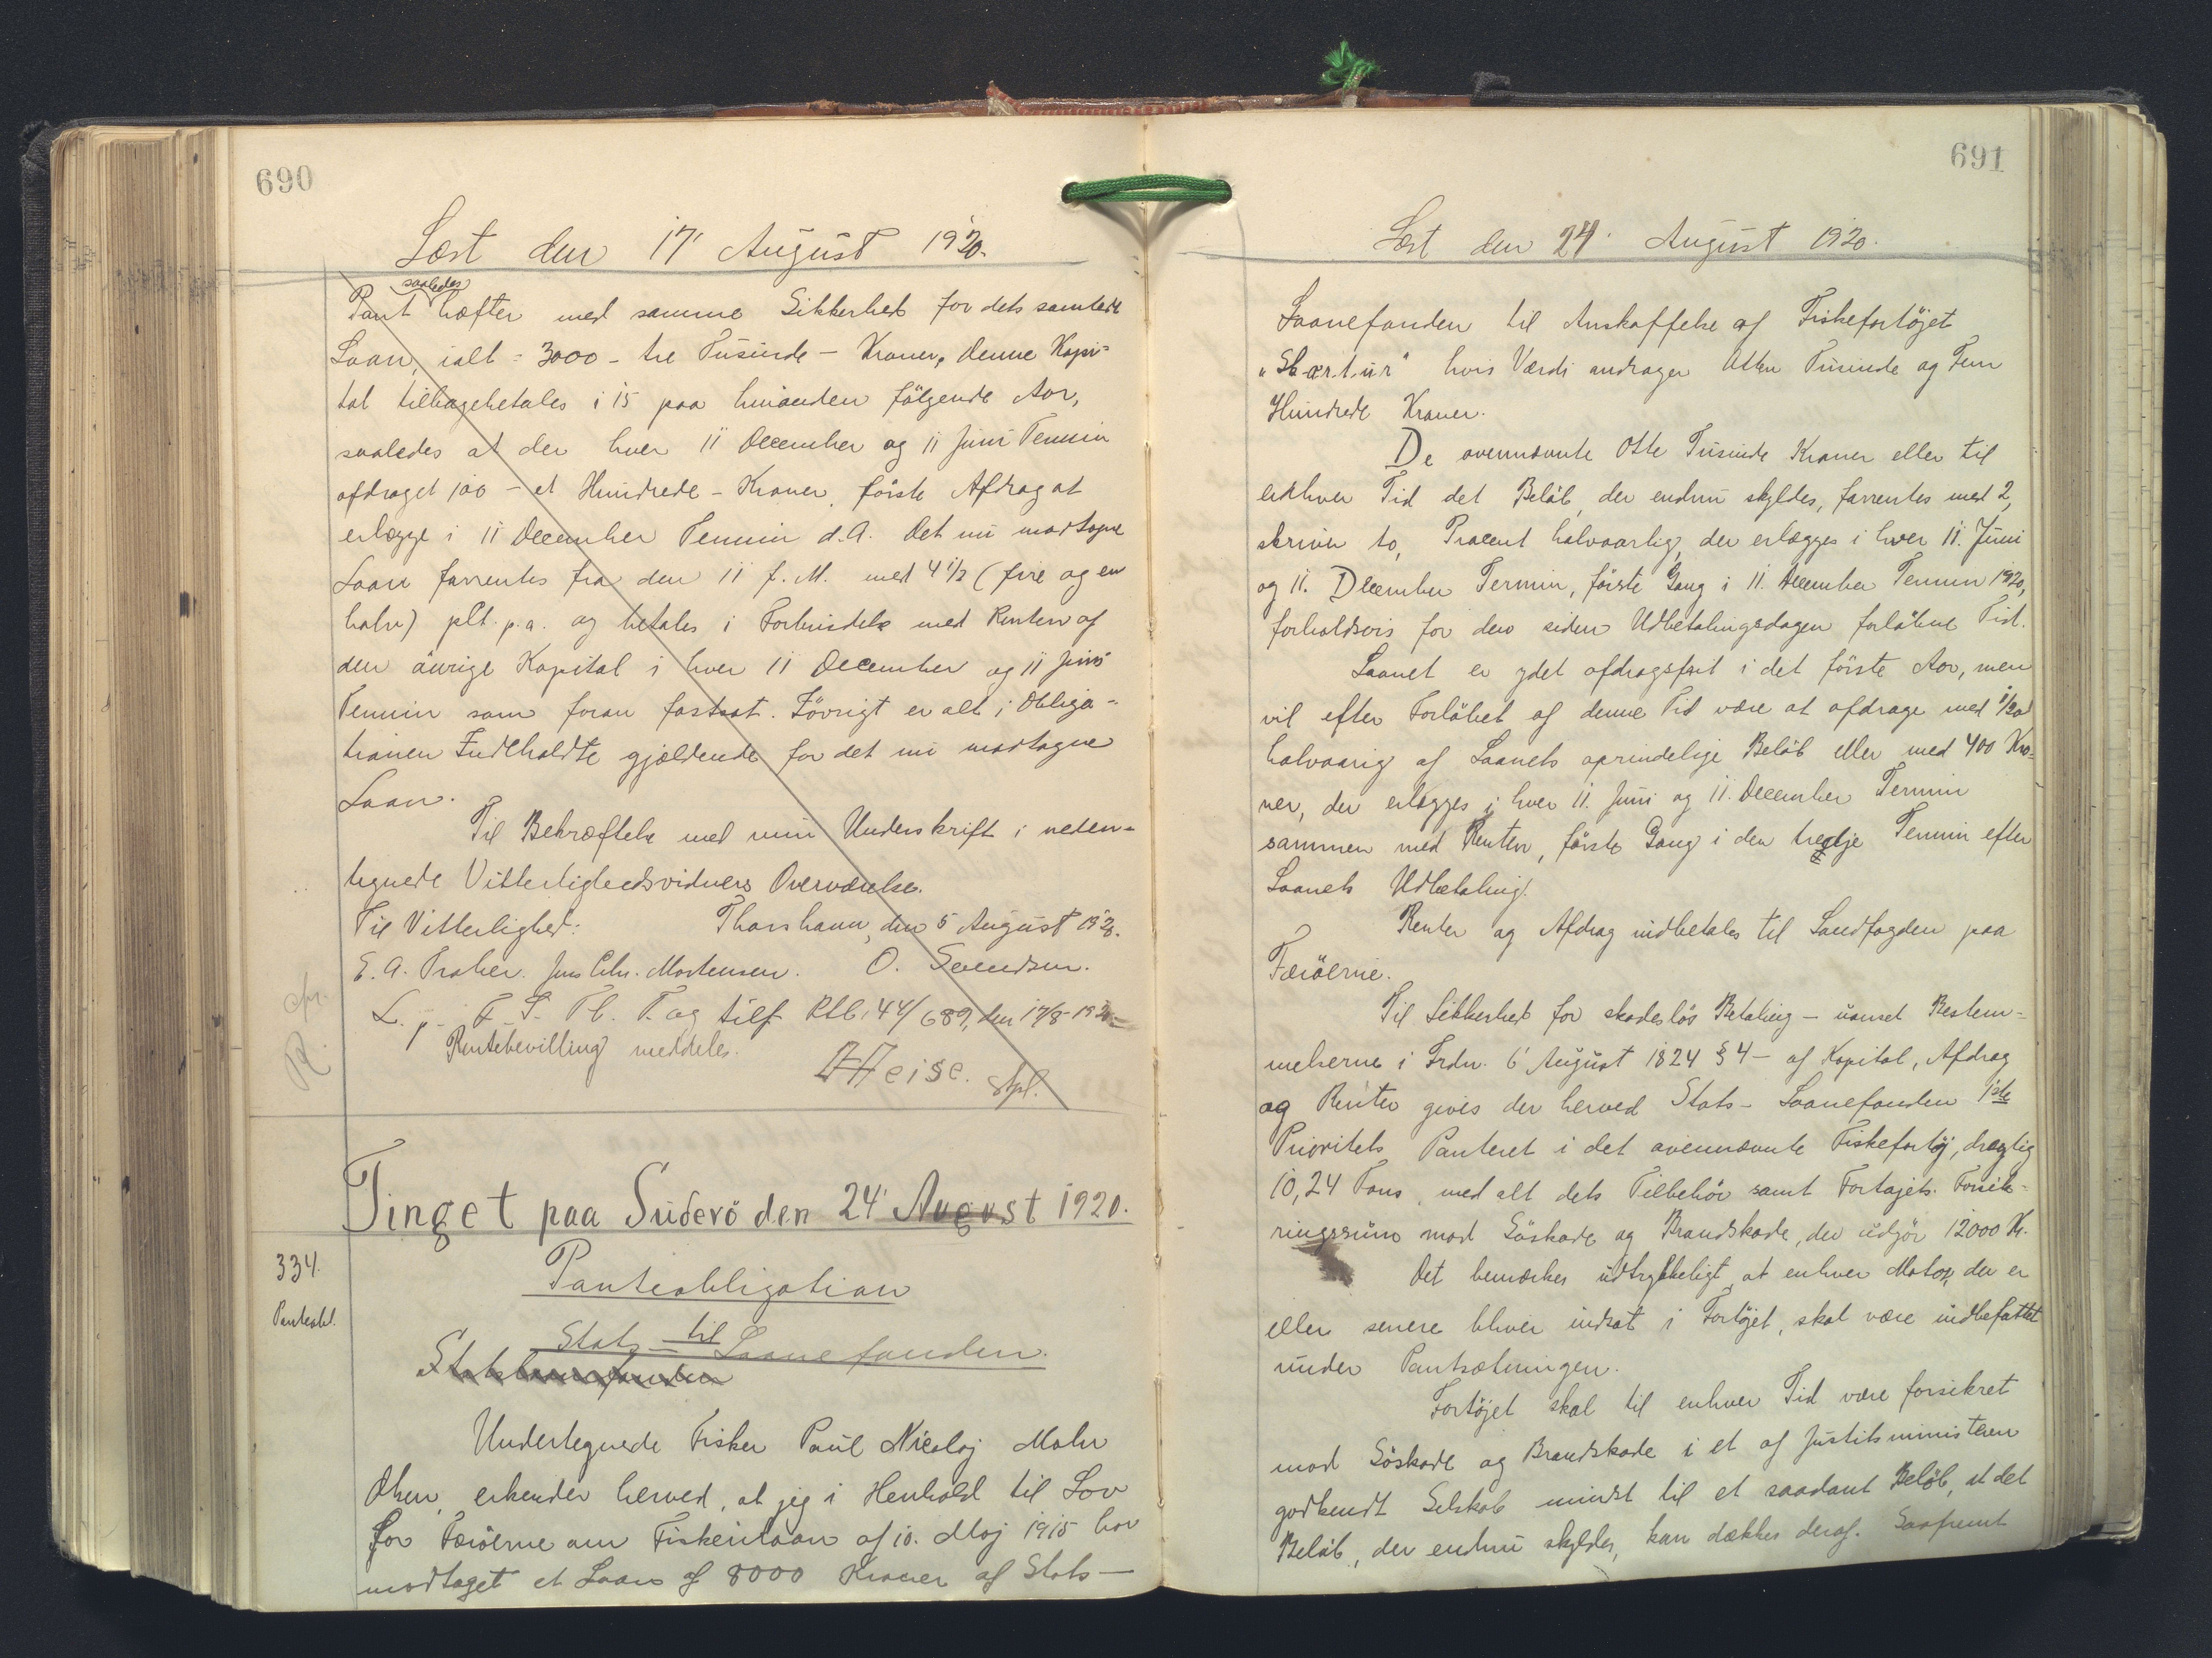 690
Læst den 17' August 1920.
saaledes
Pant hæfter med samme Sikkerhed for dets samlede
Laan, ialt = 3000 - tre Tusinde - Kroner, denne Kapi=
tal tilbagebetales i 15 paa hinanden følgende Aar,
saaledes at der hver 11 December og 11 Juni Termin
afdraget 100 - et Hundrede - Kroner, første Afdrag at
erlægge i 11 December Termin d.A. Det nu modtagne
Laan forrentes fra den 11 f.M. med 4 1/2 (fire og en
halv) pCt. p.a. og betales i Forbindelse med Renten af
den øvrige Kapital i hver 11 December og 11 Juni
Termin som foran fastsat. Iøvrigt er alt i Obliga=
tionen Indeholdte gjældende for det nu modtagne
Laan.
Til Bekræftelse med min Underskrift i neden=
tegnede Vitterlighedsvidners Overværelse.
Til Vitterlighed: Thorshavn, den 5 August 1920.
E. A. Jens Chr. Mortensen. O. Svendsen.
L. p. F. S. Tb. T. og tilf Rtb. 44/689, den 17/8-1920
Rentebevilling meddeles.
Heise. Stpl.
Tinget paa Suderø den 24' August 1920.
334.
Panteobl.
Panteobligation
til
Stats-Laanefonden.
Statslaanefonden
Undertegnede Fisker Paul Nicolaj Mohr
Olsen, erkender herved, at jeg i Henhold til Lov
for Færøerne om Fiskerilaan af 10. Maj 1915 har
modtaget et Laan af 8000 Kroner af Stats-
691
Læst den 24' August 1920.
Laanefonden til Anskaffelse af Fiskefartøjet
"Skærtur" hvis Værdi andrager Atten Tusinde og Fem
Hundrede Kroner.
De ovennævnte Otte Tusinde Kroner eller til
enhver Tid det Beløb, der endnu skyldes, forrentes med 2,
skriver to, Procent halvaarlig, der erlægges i hver 11. Juni
og 11. December Termin, første Gang i 11. December Termin 1920,
forholdsvis for den siden Udbetalingsdagen forløbne Tid.
Laanet er ydet afdragsfrit i det første Aar, men
vil efter Forløbet af denne Tid være at afdrage med 1/20
halvaarig af Laanets oprindelige Beløb eller med 400 Kro=
ner, der erlægges i hver 11. Juni og 11. December Termin
sammen med Renten, første Gang i den tredje Termin efter
Laanets Udbetaling.
Renter og Afdrag indbetales til Landfogden paa
Færøerne.
Til Sikkerhed for skadesløs Betaling - uanset Bestem=
melserne i Frdn. 6' August 1824 § 4 - af Kapital, Afdrag
og Renter gives der herved Stats-Laanefonden 1ste
Prioritets Panteret i det ovennævnte Fiskefartøj, drægtig
10,24 Tons, med alt dets Tilbehør samt Fartøjets Forsik=
ringssum mod Søskade og Brandskade, der udgør 12000 Kr.
Det bemærkes udtrykkeligt, at enhver Motor, der er
eller senere bliver indsat i Fartøjet, skal være indbefattet
under Pantsætningen.
Fartøjet skal til enhver Tid være forsikret
mod Søskade og Brandskade i et af Justitsministeren
godkendt Selskab mindst til et saadant Beløb, at det
Beløb, der endnu skyldes, kan dækkes deraf. Saafremt